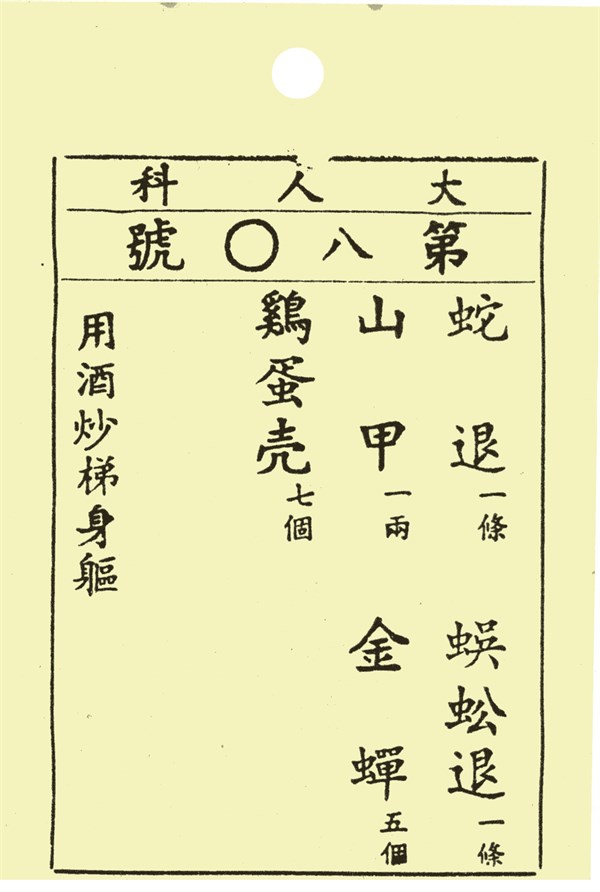 大人科
第八〇號
蛇退一條
蜈蚣退一條
山甲一兩
金蟬五個
鷄蛋壳七個
用酒炒梯身軀